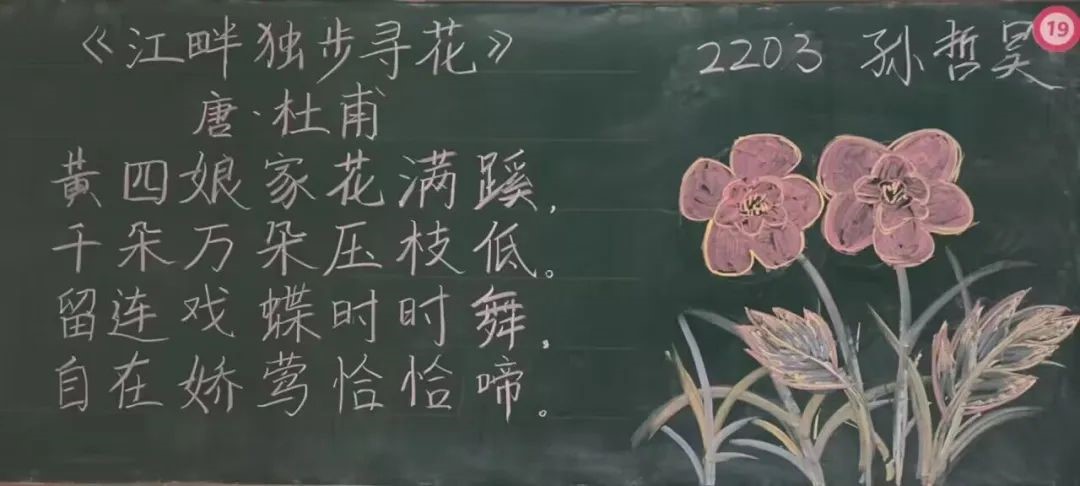 《江畔独步寻花》
唐·杜甫
黄四娘家花满蹊,
千朵万朵压枝低。
留连戏蝶时时舞,
自在娇莺恰恰啼。
2203 孙哲昊
19